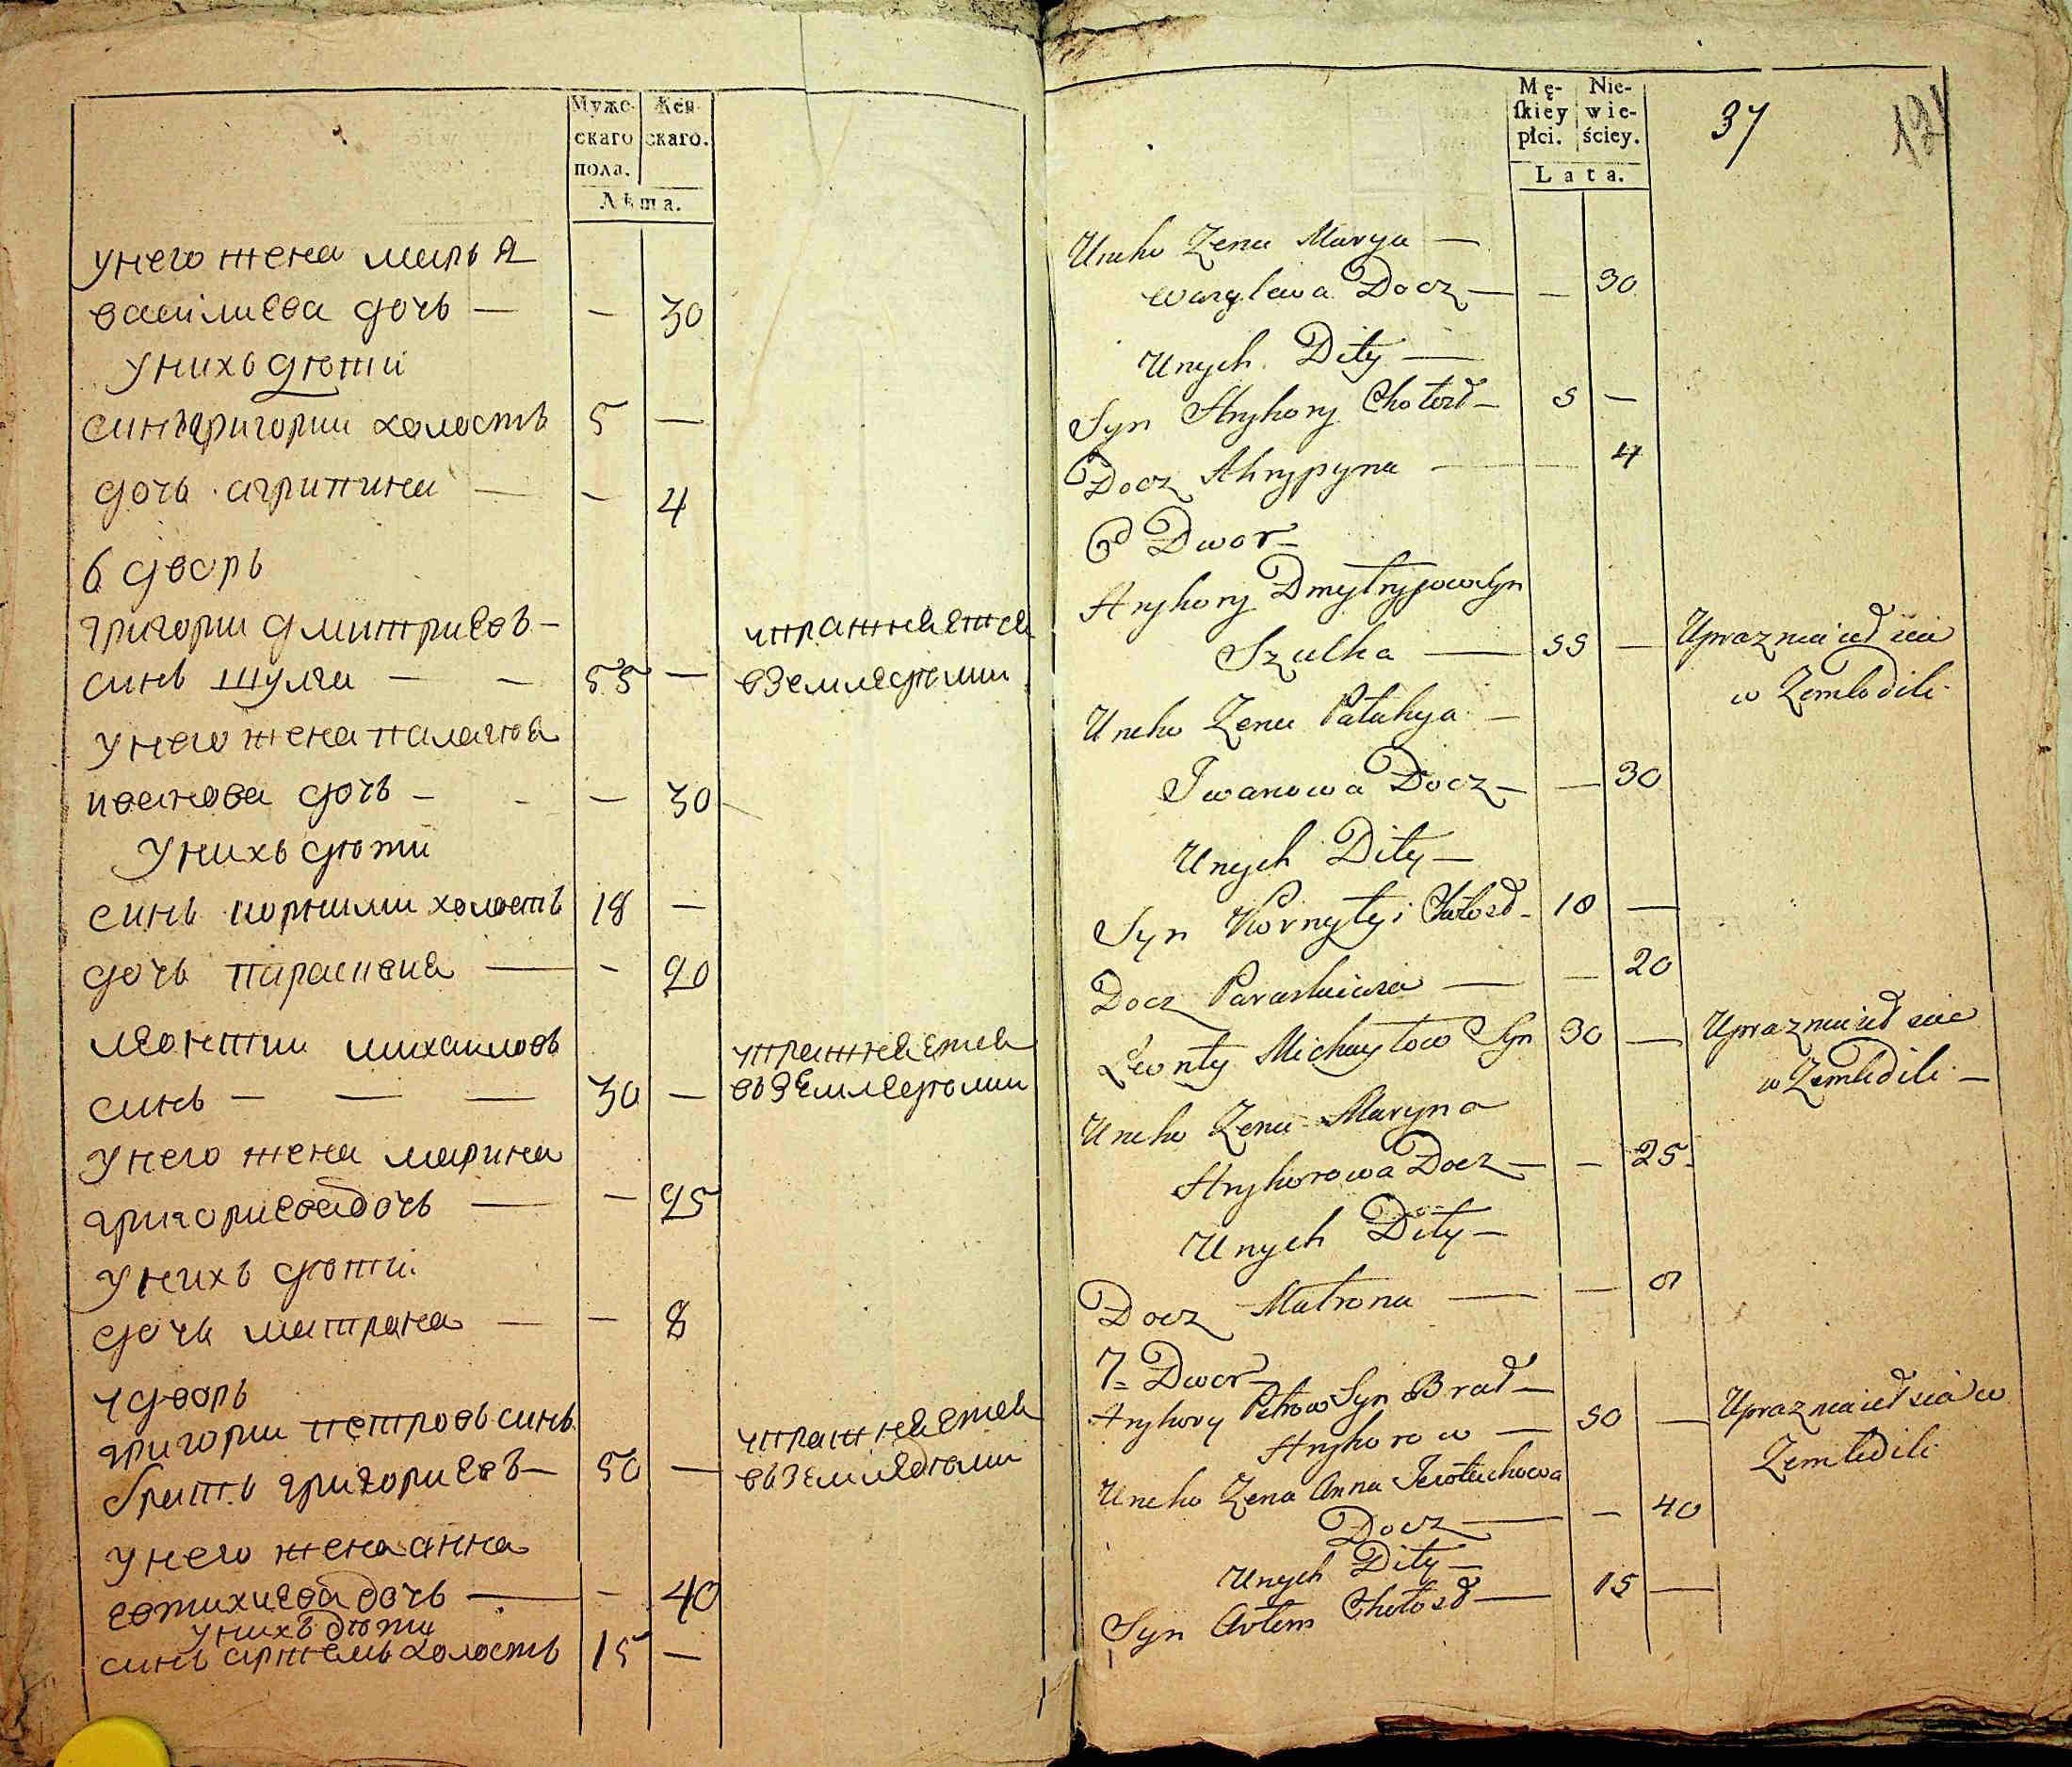 Муже-
скаго
пола.
Жен-
скаго.
Лѣта.
унего жена марья
василиева дочь — — 30
унихъ дѣти
синъ григории холостъ 5 —
дочь агрипина — — 4
6 дворъ
григории дмитриевъ —
синъ шулга — — 55 —
упражнается
вземледѣлии
унего жена палагѣа
иванова дочь — - — 30
унихъ дѣти
синъ корнили холостъ 18 —
дочь параскева — - 20
леонтии михаиловъ
синъ — — — 30 —
упражнается
въземледѣлии
унего жена марина
григориева дочь — — 25
унихъ дѣти
дочь матрана — — 8
7 дворъ
григории петровъ синъ
братъ григориевъ — 50 —
упражнается
въземледѣлии
унего жена анна
евтихиева дочь — — 40
унихъ дѣти
синъ артемъ холостъ 15 —
Mę-
ſkiey
płci.
Nie-
wie-
ściey.
Lata.
37
Uneho Zena Marya —
Wasylewa Docz — — 30
Unych Dity —
Syn Hryhory Chołost — 5 —
Docz Ahrypyna — — 4
6 Dwor —
Hryhory Dmytryjow Syn
Szulha — 55 —
Uprazniaiet sia
w Zemlodili
Uneho Zena Palahya —
Iwanowa Docz — — 30
Unych Dity —
Syn Kornyłyi Chołost — 18 —
Docz Paraskiwia — — 20
Lewnty Michayłow Syn 30 —
Uprazniaiet sia
w Zemledili —
Uneho Zena Maryna
Hryhorowa Docz — — 25
Unych Dity —
Docz Matrona — — 8
7 Dwor —
Hryhory Petrow Syn Brat —
Hryhorow — 50 —
Uprazniaiet sia w
Zemledili
Uneho Zena Anna
Docz — — 40
Unych Dity —
Syn Artem Chołost — 15 —